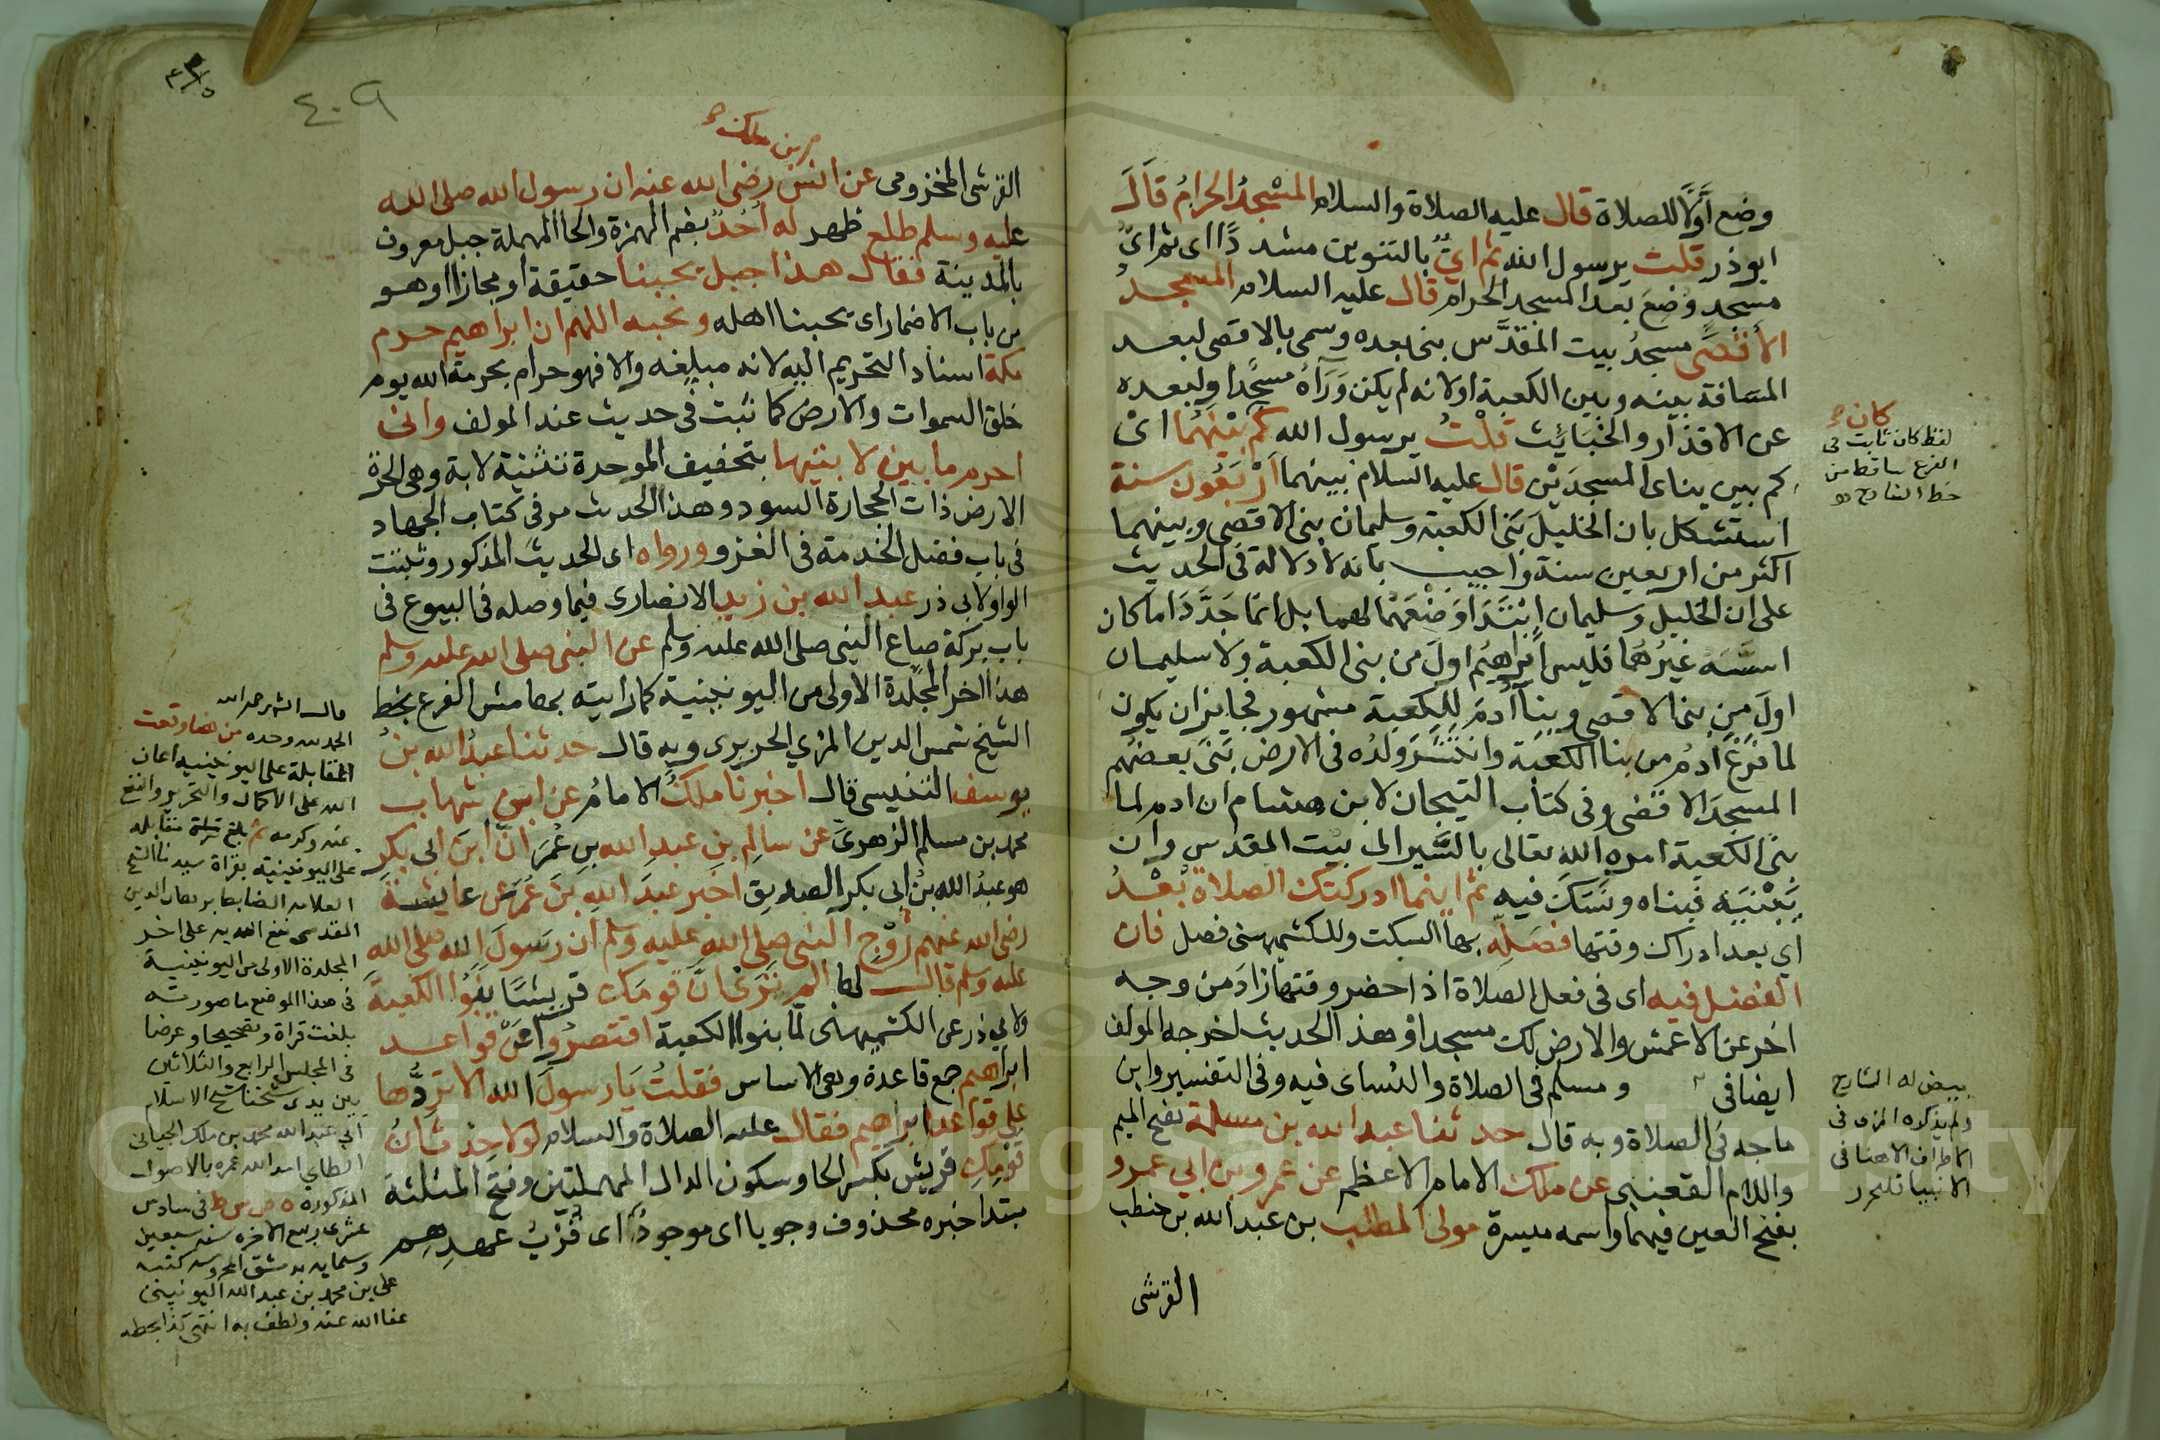 وضع أوّلا للصلاة قال عليه الصلاة والسلام المسْجدُ الحرامُ قالَ
ابوذر قلت يرسول الله ثم ايٌّ بالتنوين مشددًا اى ثم ايّ
مسجدٍ وُضِعَ بعد المسجد الحرام قال عليه السلام المسجدُ
الأقصَى مسجدُ بيت المقدَّس بنى بعده وسمى بالاقصى لبعد
المسَافة بينه وبين الكعبة اولانه لم يكن وَرَآءَهُ مسجدًا ولبعده
عن الاقذار والخبَايُث قلْتُ يرسول الله كم بيْنهُمَا اىْ
كم بين بناى المسجدَيْن قال عليه السلام بينهما أرْبَعُون سنة
استشكل بان الخليلَ بَنَى الكعبة وسليمان بنى الاقصى وبينهما
اكثر من اربعين سنة واجيب بانه لا دلالة فى الحديث
على ان الخليل وسليمان ابْتَدَا وَضْعَهُمَا لهما بل انما جَدَّدَا ما كان
اسَّسَهُ غيرُهُما فليس ابرَاهِيْم اولَ من بنى الكعبة ولا سليمان
اولَ من بنى الاقصى وبنآ آدمَ للِكعبة مشهور فجايز ان يكون
لما فرَغَ آدمُ من بنا الكعبَة وانتشَرَ ولدُه فى الارض بَنَى بعضُهم
المسجدَ الاقصَى وفى كتاب التيجان لابن هشام ان ادم لما
بنى الكعبة امره الله تعالى بالسَّير الى بيت المقدس وان
يَبْنيَه فبناه ونَسَكَ فيه ثم اينما ادركتك الصلاة بَعْدُ
اى بعد ادراك وقتها فصَلِّهْ بها السكت وللكشميهنى فصل فان
الفضل فيه اى فى فعل الصلاة اذا حضر وقتها زادَ من وجه
اخر عن الاعمش والارض لك مسجدا وهذ الحديث اخرجه المولف
ايضا فى ومسلم فى الصلاة والنساى فيه وفى التفسير وابن
ماجه فى الصلاة وبه قال حدثنا عبد الله بن مسلمة بفتح الميم
واللام القعنبى عن ملك الامام الاعظم عن عمرو بن ابي عمرو
بفتح العين فيهما واسمه ميسرة مولى المطلب بن عبد الله بن حنطب
القرشى
كان
لفظ كان ثابت فى
الفرع ساقط من
خط الشارح
بيض له الشارح
ولم يذكره المزى فى
الاطراف الا هنا فى
الانبيا فليحرر
٤٠٩
بن ملك
القرشى المخزومى عن انس رضى الله عنه ان رسول الله صلى الله
عليه وسلم طلع ظهر له أُحُدٌ بضم الهمزة والحا المهملة جبل معروف
بالمدينة فقال هذا جبل يحبنا حقيقة او مجازا او هو
من باب الاضمار اى يحبنا اهله ونحبه اللهم ان ابراهيم حرم
مكة اسناد التحريم اليه لانه مبلغه والا فهو حرام بحرمة الله يوم
خلق السموات والارض كما ثبت فى حديث عند المولف وانى
احرم ما بين لابتيها بتخفيف الموحدة تثنية لابة وهى الحرة
الارض ذات الحجارة السود وهذ الحديث مر فى كتاب الجهاد
فى باب فضل الخدمة فى الغزو ورواه اى الحديث المذكور وثبتت
الواو لابى ذر عبد الله بن زيد الانصارى فيما وصله فى البيوع فى
باب بركة صاع النبى صلى الله عليه وسلم عن النبى صلى الله عليه وسلم
هذا اخر المجلدة الاولى من اليونينية كما رايته بهامش الفرع بخط
الشيخ شمس الدين المزي الحريرى وبه قال حدثنا عبدُ الله بنُ
يوسف التنيسى قال اخبرنا ملكٌ الامامُ عن ابن شهاب
محمد بن مسلم الزهرىّ عن سالِم بنِ عبدِ الله بنِ عُمَرَ انّ ابنَ ابى بكرٍ
هو عبدُ الله بنُ ابى بكر الصديق اخبر عبدَ اللهِ بنَ عُمَرَ عن عايشةَ
رضى الله عنهم زوْجِ النبى صلى الله عليه وسلم ان رسولَ الله صلى الله
عليه وسلم قال لها الم تَرَىْ انَّ قومَكِ قريشًا بَنَوُا الكعبةَ
ولابى ذر عن الكشميهنى لمّا بنوا الكعبة اقتصرُوا عَنْ قواعد
ابراهيم جمع قاعدة وهى الاساس فقلتُ يَا رسولَ الله الا تردُّها
على قواعد ابراهيم فقال عليه الصلاة والسلام لولا حِدثَانُ
قومِكِ قريش بكسر الحا وسكون الدال المهملتين وفتح المثلثة
مبتدا خبره محذوف وجوبا اى موجودٌ اى قُرْبُ عهدِهِم
قال الشارح رحمه الله
الحمد لله وحده من هنا وقعت
المقابلة على اليونينيه اعان
الله على الاكمال والتحرير والنفع
بمنه وكرمه ثم بلغ مقابله
على اليونينية بقراة سيدنا الشيخ
العلامه برهان الدين
المقدسى نفع الله به على اخر
المجلدة الاولى من اليونينية
فى هذا الموضع ما صورته
بلغت قراة وتصحيحا وعرضا
فى المجلس الرابع والثلاثين
بين يدى شيخنا شيخ الاسلام
ابي عبد الله محمد بن ملك الجيانى
الطاي امد الله عمره بالاصول
المذكورة ه ص س ط فى سادس
عشرى ربيع الاخره سنه سبعين
وستمايه بدمشق المحروسه كتبه
على بن محمد بن عبد الله اليونينى
عفا الله عنه ولطف به انتهى كذا بخطه